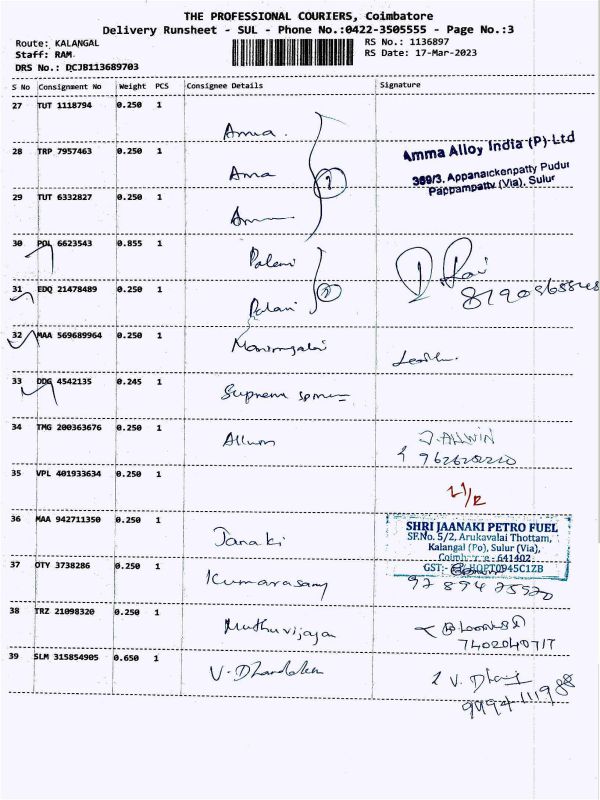 THE PROFESSIONAL COURIERS, Coimbatore
Delivery Runsheet - SUL - Phone No.:0422-3505555 - Page No.:3
Route: KALANGAL
RS No.: 1136897
Staff: RAM
RS Date: 17-Mar-2023
DRS No.: DCJB113689703
S No Consignment No Weight PCS Consignee Details Signature
27 TUT 1118794 0.250 1
Amma.
28 TRP 7957463 0.250 1
Ama
Amma Alloy India (P)-Ltd
369/3, Appanaickenpatty Pudur
Pappampatty (Via), Sulur
29 TUT 6332827 0.250 1
30 POL 6623543 0.855 1
Palani
31 EDQ 21478489 0.250 1
Palani
32 MAA 569689964 0.250 1
33 DDG 4542135 0.245 1
Suprema
34 TMG 200363676 0.250 1
Allwin
J. ALLWIN
9626202220
35 VPL 401933634 0.250 1
36 MAA 942711350 0.250 1
Janaki
SHRI JAANAKI PETRO FUEL
SF.No. 5/2, Arukavalai Thottam,
Kalangal (Po), Sulur (Via),
Coimbatore - 641402
GST:-
37 OTY 3738286 0.250 1
Kumarasamy
38 TRZ 21098320 0.250 1
Muthuvijaya
7402040717
39 SLM 315854905 0.650 1
V. Dhandakan
V. Dhang